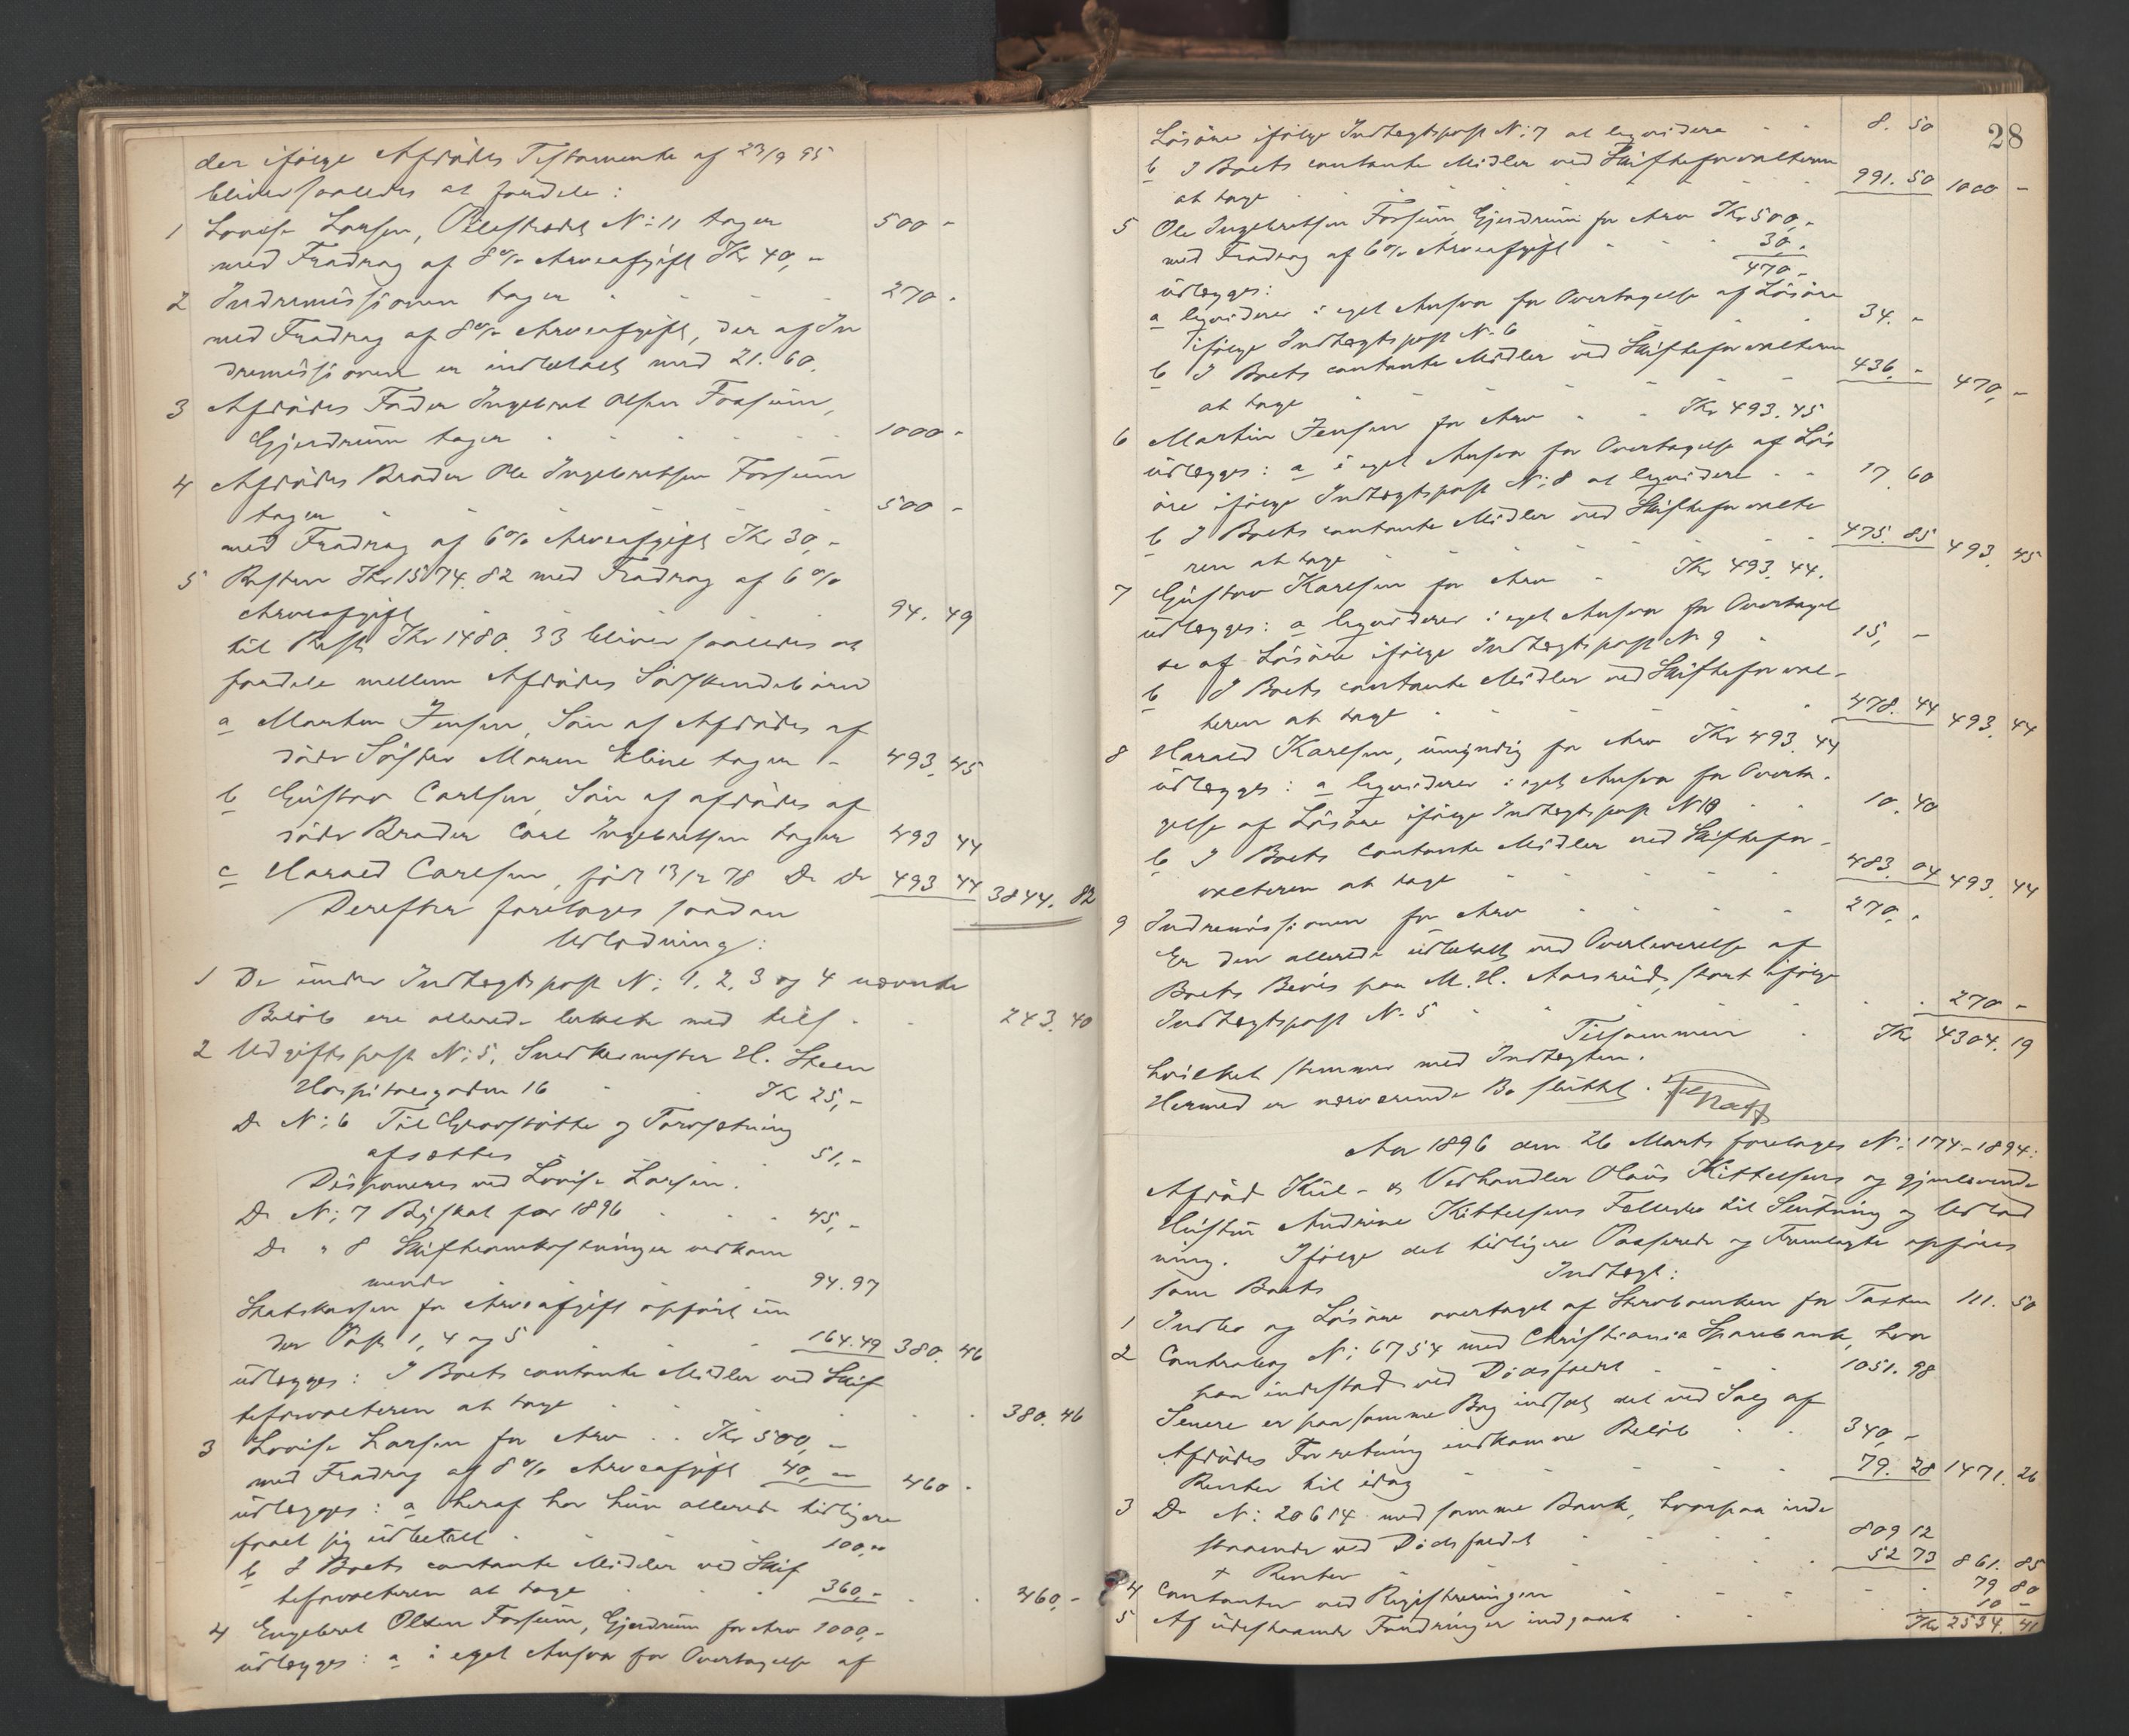 der ifølge Afdødes Testamente af 23/9 95
bliver saaledes at fordele:
1 Lovise Larsen, Pilestrædet N: 11 tager 500 -
med Fradrag af 8% Arveafgift Kr 40,-
2 Indremissionen tager 270 -
med Fradrag af 8% Arveafgift, der af In
dremissionen er indbetalt med 21.60.
3 Afdødes Fader Ingebret Olsen Forsum,
Gjerdrum tager 1000 -
4 Afdødes Broder Ole Ingebretsen Forsum
tager 500 -
med Fradrag af 6% Arveafgift Kr 30,-
5 Resten Kr 1574.82 med Fradrag af 6%
Arveafgift 94. 49
til Rest Kr 1480.33 bliver saaledes at
fordele mellem Afdødes Södskendebörn
a Martin Jensen, Sön af Afdödes af
döde Söster Maren Eline tager - 493. 45
b Gustav Carlsen, Sön af afdödes af
döde Broder Carl Ingebretsen tager 493 44
c Harald Carlsen, födt 13/12 78 Do Do 493 44 3844. 82
Derefter foretages saadan
Udlodning:
1 De under Indtægtspost N: 1, 2, 3 og 4 nævnte
Belöb ere allerede betalte med tils. 243. 40
2 Udgiftspost N: 5, Snedkermester H. Steen
Hospitalsgaden 16 Kr 25,-
Do N: 6 Til Gravstötte og Torvsætning
afsættes 51.-
Disponeres ved Lovise Larsen.
Do N: 7 Byskat for 1896 45,-
Do " 8 Skifteomkostninger vedkom
mende 94.97
Statskassen for Arveafgift opfört un
der Post 1, 4 og 5 164.49 380. 46
udlægges: I Boets contante Midler ved Skif
teforvalteren at tage 380. 46
3 Lovise Larsen for Arv Kr 500,-
med Fradrag af 8% Arveafgift 40,- 460 -
udlægges: a heraf har hun allerede tidligere
faaet sig udbetalt 100,-
b I Boets contante Midler ved Skif
teforvalteren at tage 360,- 460,-
4 Engebret Olsen Forsum, Gjerdrum for Arv 1000,-
udlægges: a i eget Ansvar for Overtagelse af
28
Lösöre ifölge Indtægtspost N: 7 at liqvidere 8. 50
b I Boets contante Midler ved Skifteforvalteren
at tage 991. 50 1000 -
5 Ole Ingebretsen Forsum, Gjerdrum for Arv Kr 500,-
med Fradrag af 6% Arveafgift 30,-
470,-
udlægges:
a liqviderer i eget Ansvar for Overtagelse af Lösöre
ifölge Indtægtspost N. 6 34. -
b I Boets contante Midler ved Skifteforvalteren
at tage 436. - 470, -
6 Martin Jensen for Arv Kr 493.45
udlægges: a i eget Ansvar for Overtagelse af Lös
öre ifölge Indtægtspost N: 8 at liqvidere 17. 60
b I Boets contante Midler ved Skifteforvalte
ren at tage 475. 85 493. 45
7 Gustav Karlsen for Arv Kr 493.44.
udlægges: a liqviderer i eget Ansvar for Overtagel
se af Lösöre ifölge Indtægtspost N 9 15, -
b I Boets contante Midler ved Skifteforval-
teren at tage 478. 44 493. 44
8 Harald Karlsen, umyndig for Arv Kr 493.44
udlægges: a liqviderer i eget Ansvar for Overta-
gelse af Lösöre ifölge Indtægtspost N 10 10. 40
b I Boets Contante Midler ved Skiftefor-
valteren at tage 483. 04 493. 44
9 Indremissionen for Arv 270. -
Er den allerede udbetalt ved Overleverelse af
Boets Bevis paa M. H. Aarsrud, stort ifölge
Indtægtspost N. 5 270 -
Tilsammen Kr 4304. 19
hvilket stemmer med Indtægten.
Hermed er nærværende Bo sluttet.
Aar 1896 den 26 Marts foretages N: 174-1894:
Afdöd Kul- & Vedhandler Olaus Kittelsens og gjenlevende
Hustru Andrine Kittelsens Fællesbo til Slutning og Udlod
ning. Ifölge det tidligere Passerede og Fremlagte opföres
som Boets Indtægt:
1 Indbo og Lösöre overtaget af Stervboenken for Taxten 111. 50
2 Contrabog N: 6754 med Christiania Sparebank, hvor
paa indestod ved Dödsfaldet 1051. 98
Senere er paa samme Bog indsat det ved Salg af
Afdödes Forretning indkomne Belöb 340, -
Renter til idag 79. 28 1471. 26
3 Do N: 20614 med samme Bank, hvorpaa inde
staaende ved Dödsfaldet 809 12
+ Renter 52 73 861. 85
4 Contanter ved Registreringen 79 80
5 Af udestaaende Fordringer indgaaet 10 -
Kr 2534. 41